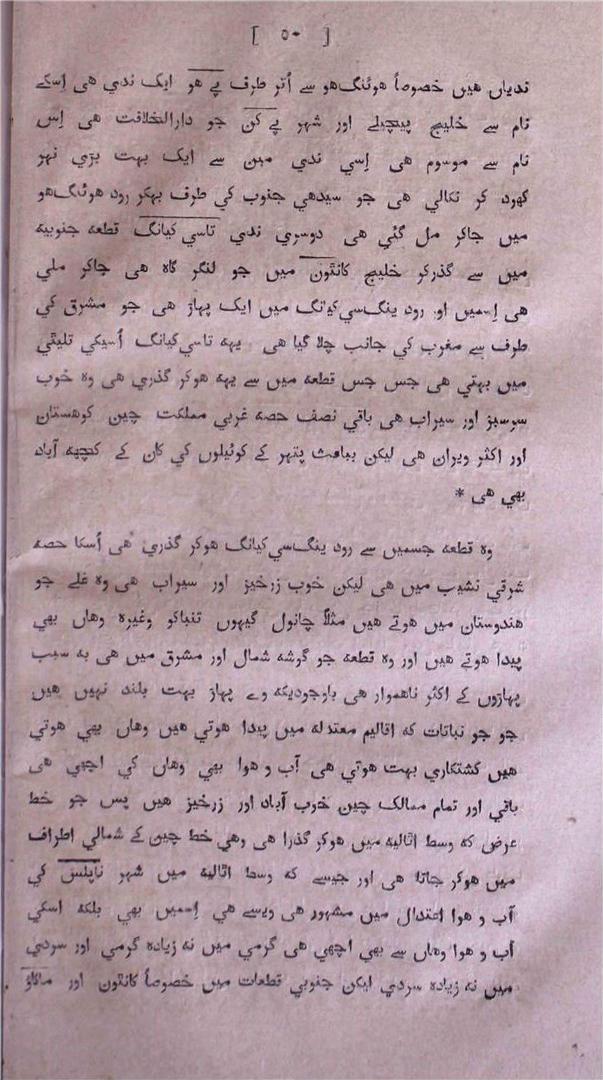 [ ٥٠ ]
ندیاں هیں خصوصاً هوئنگ‌هو سے اُتر طرف پے هو ایک ندي هی اِسکے
نام سے خلیج پیچیلے اور شہر پے کن جو دارالخلافت هی اِس
نام سے موسوم هی اِسي ندي مین سے ایک بہت بڑي نہر
کهود کر نکالي هی جو سیدهي جنوب کي طرف بہکر رود هوئنگ‌هو
میں جاکر مل گئي هی دوسري ندي تاسي کیانگ قطعه جنوبیه
میں سے گذرکر خلیج کانٹون میں جو لنگر گاه هی جاکر ملي
هی اِسمیں اور رود ینگ‌سي‌کیانگ میں ایک پہاڑ هی جو مشرق کي
طرف سے مغرب کي جانب چلا گیا هی یهه تاسي‌کیانگ اُسیکي تلیٹي
میں بہتي هی جس جس قطعه میں سے یهه هوکر گذري هی وه خوب
سرسبز اور سیراب هی باقي نصف حصه غربي مملکت چین کوهستان
اور اکثر ویران هی لیکن بباعث پتهر کے کوئیلوں کي کان کے کچهه آباد
بهي هی *
وه قطعه جسمیں سے رود ینگ‌سي‌کیانگ هوکر گذري هی اُسکا حصه
شرقي نشیب میں هی لیکن خوب زرخیز اور سیراب هی وه غلے جو
هندوستان میں هوتے هیں مثلاً چانول گیہوں تنباکو وغیره وهاں بهي
پیدا هوتے هیں اور وه قطعه جو گوشه شمال اور مشرق میں هی به سبب
پہاڑوں کے اکثر ناهموار هی باوجودیکه وے پہاڑ بہت بلند نہیں هیں
جو جو نباتات که اقالیم معتدله میں پیدا هوتي هیں وهاں بهي هوتي
هیں کشتکاري بہت هوتي هی آب و هوا بهي وهاں کي اچهي هی
باقي اور تمام ممالک چین خوب آباد اور زرخیز هیں پس جو خط
عرض که وسط اٹالیه میں هوکر گذرا هی وهي خط چین کے شمالي اطراف
میں هوکر جاتا هی اور جیسے که وسط اٹالیه میں شہر ناپلس کي
آب و هوا اعتدال میں مشہور هی ویسے هي اِسمیں بهي بلکه اسکي
آب و هوا وهاں سے بهي اچهي هی گرمي میں نه زیاده گرمي اور سردي
میں نه زیاده سردي لیکن جنوبي قطعات میں خصوصاً کانٹون اور ماکاؤ